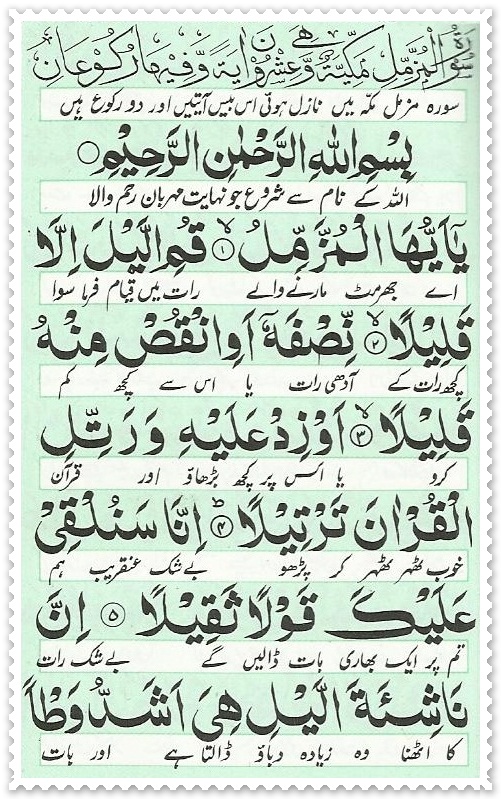 سورة المزمل مكية وهي عشرون اية وفيها ركوعان
سورہ مزمل مکہ میں نازل ہوئی اس بیس آیتیں اور دو رکوع ہیں
بِسْمِ اللهِ الرَّحْمٰنِ الرَّحِيْمِ ○
اللہ کے نام سے شروع جو نہایت مہربان رحم والا
يٰٓاَيُّهَا الْمُزَّمِّلُ ۙ﴿۱﴾ قُمِ الَّيْلَ اِلَّا
اے جھرمٹ مارنے والے رات میں قیام فرما سوا
قَلِيْلًا ۙ﴿۲﴾ نِّصْفَهٗٓ اَوِ انْقُصْ مِنْهُ
کچھ رات کے آدھی رات یا اس سے کچھ کم
قَلِيْلًا ۙ﴿۳﴾ اَوْ زِدْ عَلَيْهِ وَ رَتِّلِ
کرو یا اس پر کچھ بڑھاؤ اور قرآن
الْقُرْاٰنَ تَرْتِيْلًا ؕ﴿۴﴾ اِنَّا سَنُلْقِيْ
خوب ٹھہر ٹھہر کر پڑھو بے شک عنقریب ہم
عَلَيْكَ قَوْلًا ثَقِيْلًا ﴿۵﴾ اِنَّ
تم پر ایک بھاری بات ڈالیں گے بے شک رات
نَاشِئَةَ الَّيْلِ هِيَ اَشَدُّ وَطْاً
کا اٹھنا وہ زیادہ دباؤ ڈالتا ہے اور بات